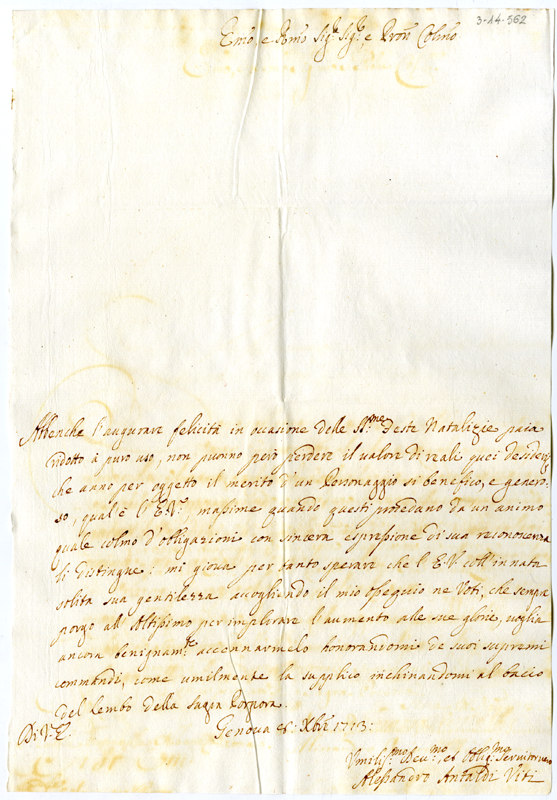 3-14-562
Emo. e Rmo. Sigr. Sigr. e Pron Colmo
Abbenche l'augurare felicità in occasione delle SS.me Feste Natalizie paia
ridotto à puro uso, non puonno però perdere il valore di reali quei desiderij
che anno per oggetto il merito d'un Personaggio si benefico, e genero-
so, qual'è l'E.V., massime quando questi procedano da un animo
quale colmo d'obbligazioni con sincera espressione di sua reconoscenza
li distingue: mi giova per tanto sperare che l'E.V. coll'innata
solita sua gentilezza accogliendo il mio ossequio ne Voti, che sempre
porgo all'Altissimo per implorare l'aumento alle sue glorie, voglia
ancora benignamte. accennarmelo honorandomi de suoi supremi
commandi, come umilmente la supplico inchinandomi al baccio
del lembo della Sagra Porpora.
Di V.E. Genova Xbre 1713:
Umiliss.mo Dev.mo, et Obblig.mo Servitore
Alessandro Antaldi Viti